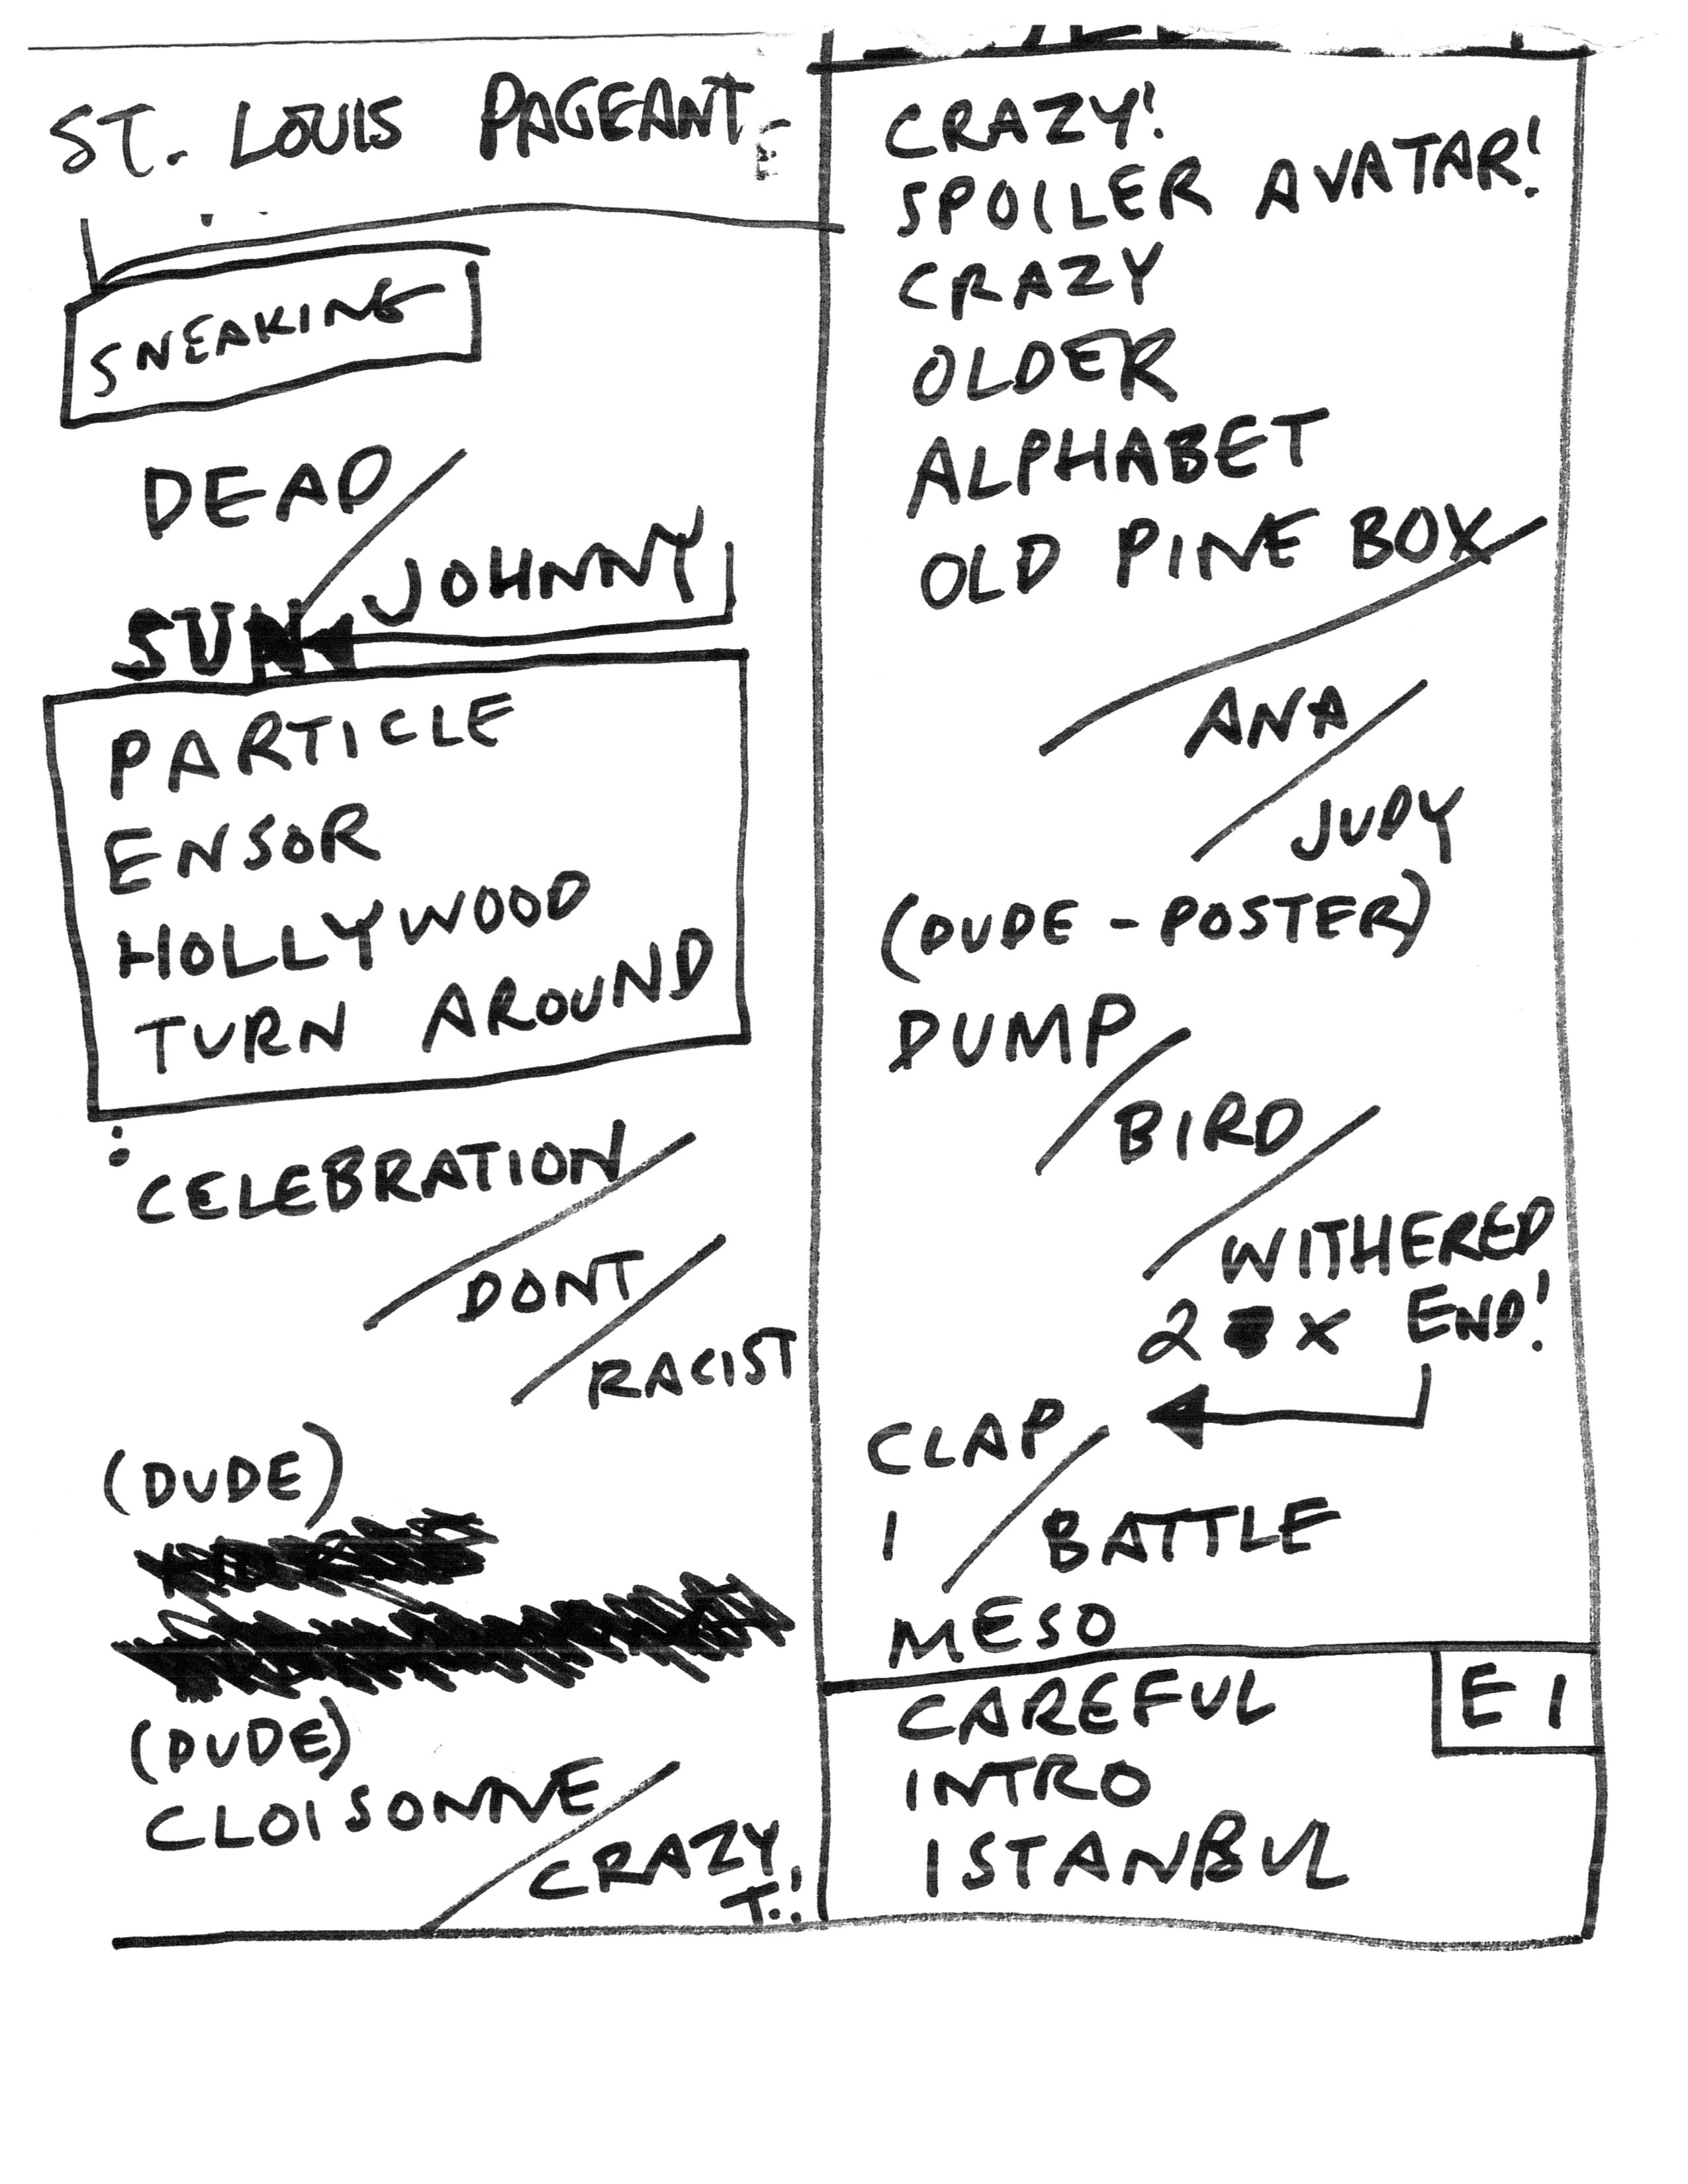 ST. LOUIS PAGEANT
SNEAKING
DEAD
JOHNNY
SUN
PARTICLE
ENSOR
HOLLYWOOD
TURN AROUND
CELEBRATION
DONT
RACIST
(DUDE)
(DUDE)
CLOISONNE
CRAZY
T.!
CRAZY!
SPOILER AVATAR!
CRAZY
OLDER
ALPHABET
OLD PINE BOX
ANA
JUDY
(DUDE - POSTER)
DUMP
BIRD
WITHERED
2 X END!
CLAP
1 BATTLE
MESO
CAREFUL E1
INTRO
ISTANBUL